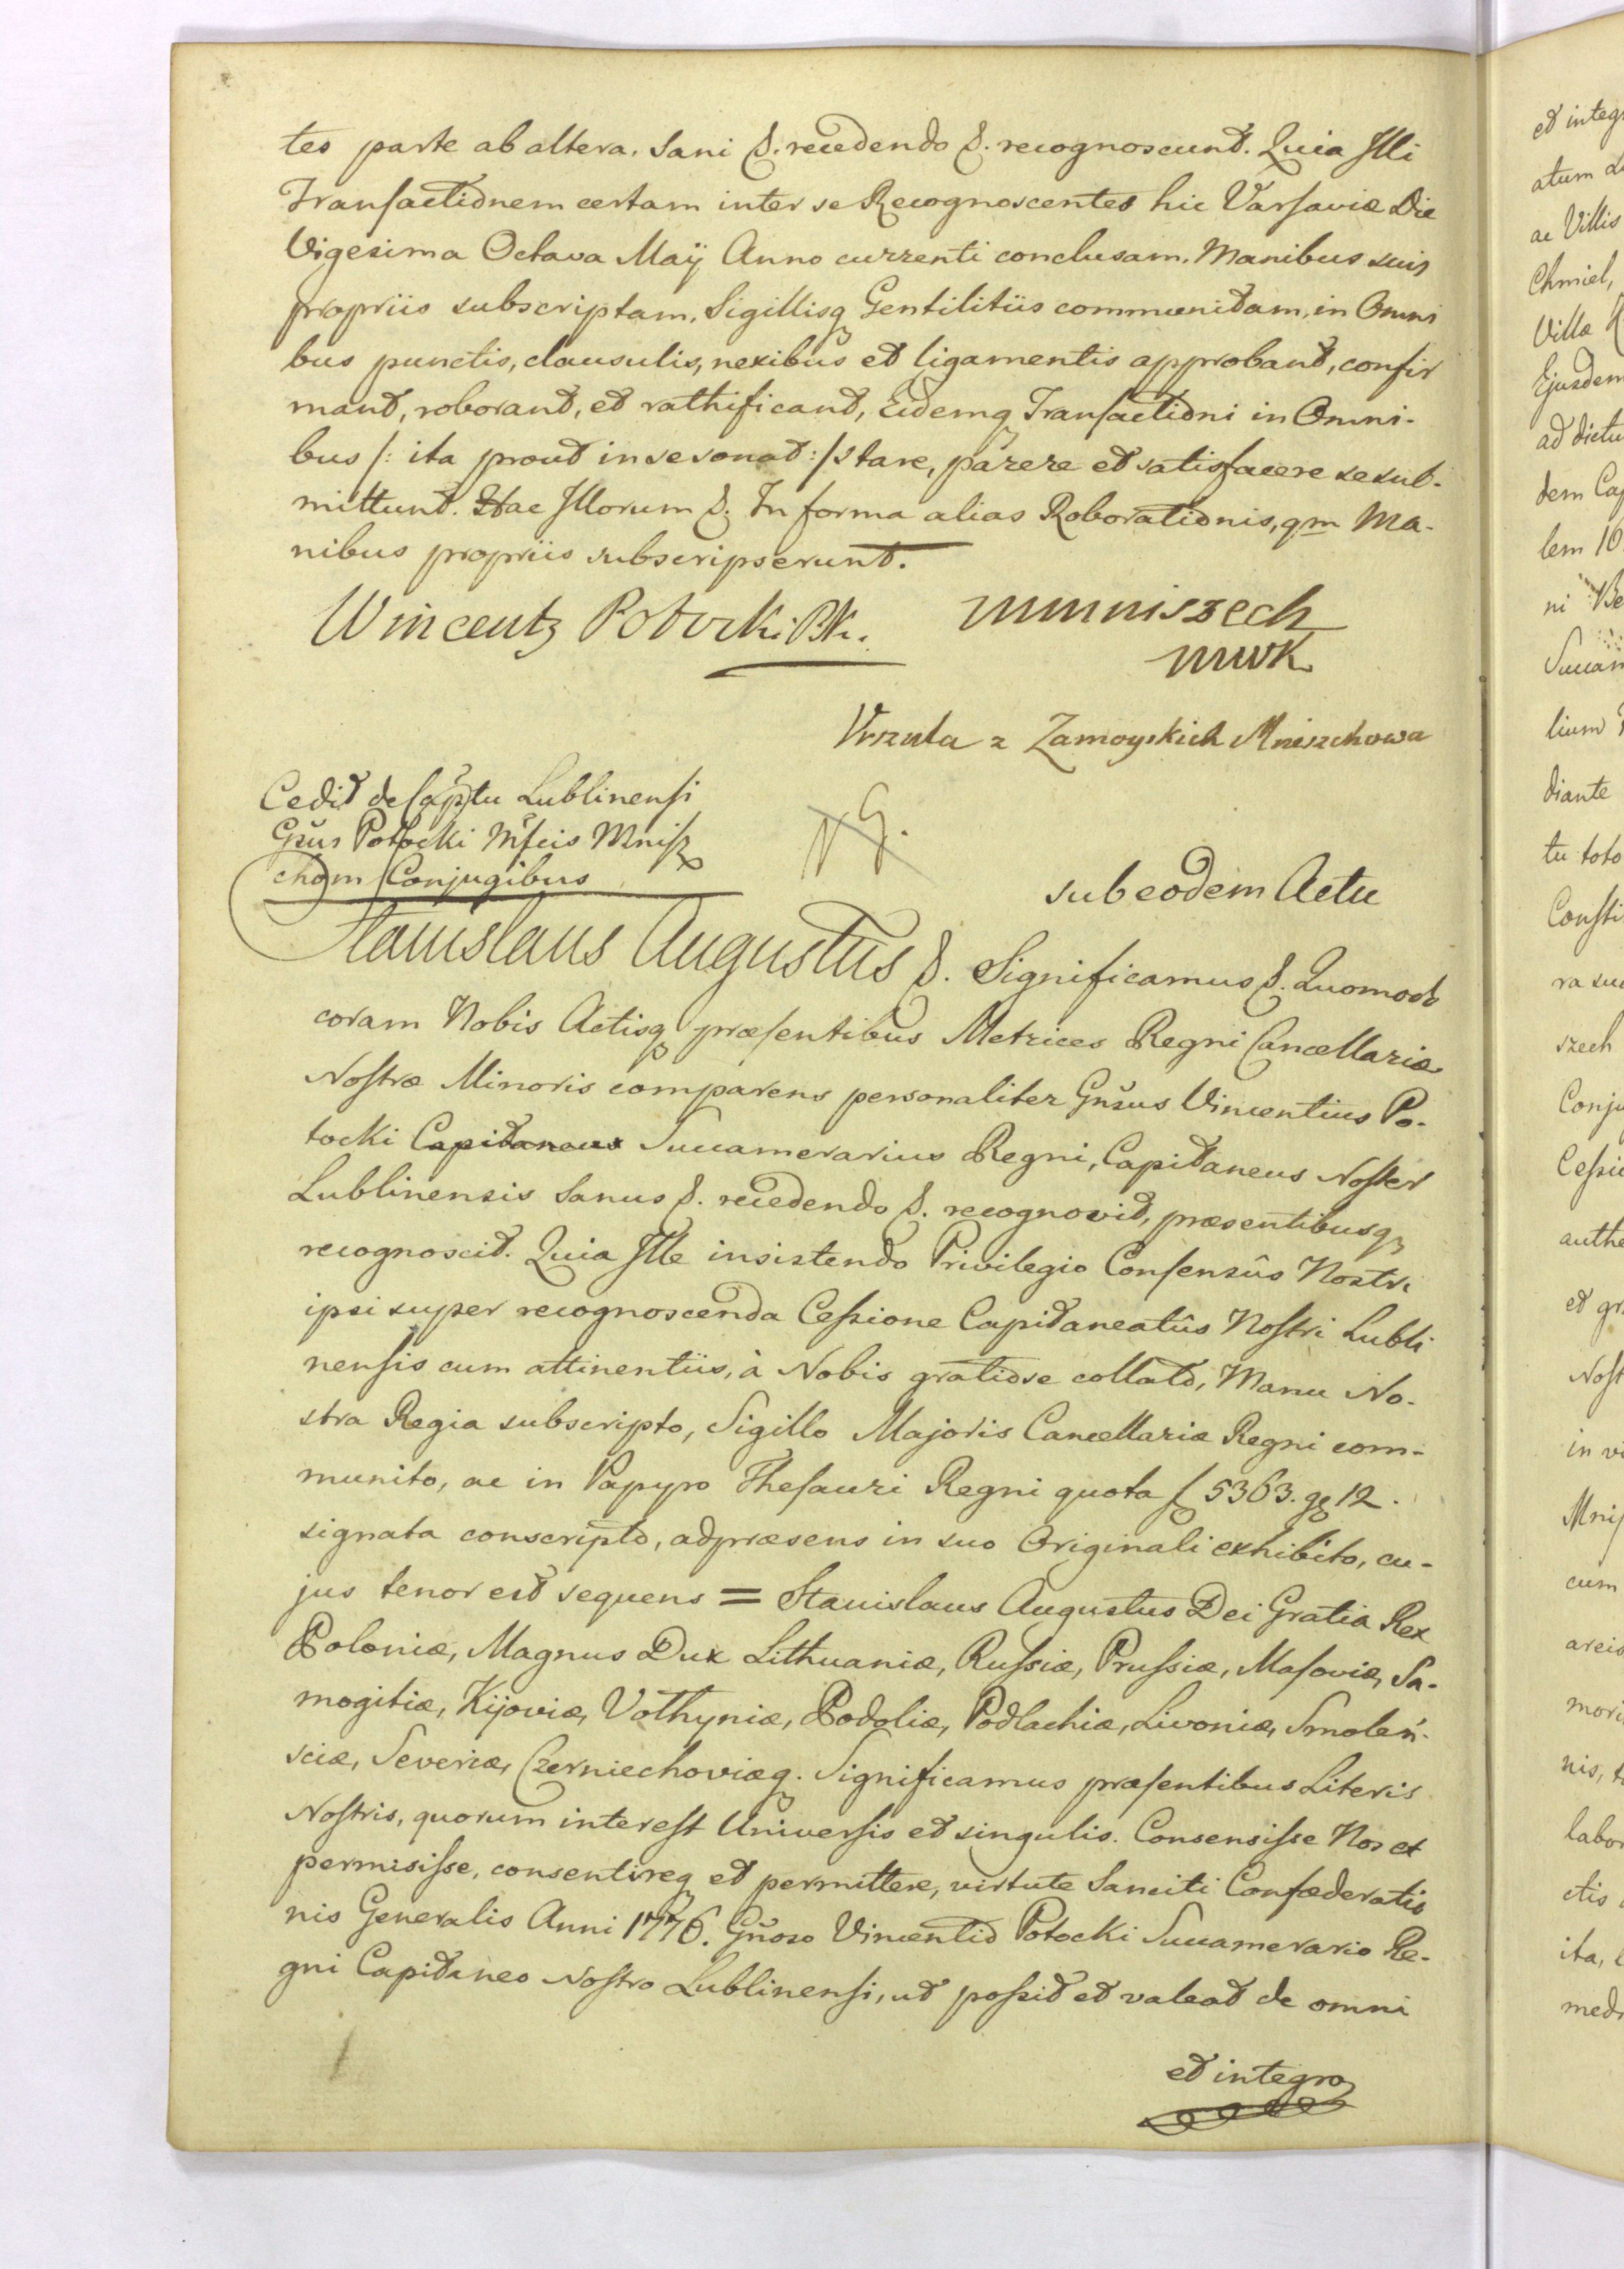 tes parte ab altera. Sani &. recedendo &. recognoscunt. Quia Illi
Transactionem certam inter se Recognoscentes hic Varsaviæ Die
Vigesima Octava Maÿ Anno currenti conclusam. Manibus suis
propriis subscriptam, Sigillisq Gentilitiis communitam, in Omni
bus punctis, clausulis, nexibus et ligamentis approbant, confir
mant, roborant, et rathificant, Eidemq Transactioni in Omni-
bus /: ita prout in se sonat :/ stare, parere et satisfacere se sub-
mittunt. Hac Illorum &. In forma alias Roborationis, qm Ma-
nibus propriis subscripserunt.
Wincenty Potocki PK.
mmniszech
mwk
Vrszula z Zamoyskich Mniszchowa
Cedit de Captu Lublinensi
Gsus Potocki Mfcis Mnisz
chom Conjugibus
NG.
sub eodem Actu
Stanislaus Augustus &. Significamus &. Quomodo
coram Nobis Actisq præsentibus Metrices Regni Cancellariæ
Nostræ Minoris comparens personaliter Gnsus Vincentius Po-
tocki Capitaneus Succamerarius Regni, Capitaneus Noster
Lublinensis Sanus &. recedendo &. recognovit, præsentibusq
recognoscit. Quia Ille insistendo Privilegio Consensûs Nostri
ipsi super recognoscenda Cessione Capitaneatûs Nostri Lubli
nensis cum attinentiis, à Nobis gratiose collato, Manu No-
stra Regia subscripto, Sigillo Majoris Cancellariæ Regni com-
munito, ac in Papyro Thesauri Regni quota f 5363. gg 12.
signata conscripto, ad præsens in suo Originali exhibito, cu-
jus tenor est sequens = Stanislaus Augustus Dei Gratia Rex
Poloniæ, Magnus Dux Lithuaniæ, Russiæ, Prussiæ, Masoviæ, Sa-
mogitiæ, Kijoviæ, Volhyniæ, Podoliæ, Podlachiæ, Livoniæ, Smoleń-
sciæ, Severiæ, Czerniechoviæq. Significamus præsentibus Literis
Nostris, quorum interest Universis et singulis. Consensisse Nos et
permisisse, consentireq et permittere, virtute Sanciti Confæderatio
nis Generalis Anni 1776. Gnoso Vincentio Potocki Succamerario Re-
gni Capitaneo Nostro Lublinensi, ut possit et valeat de omni
et integro